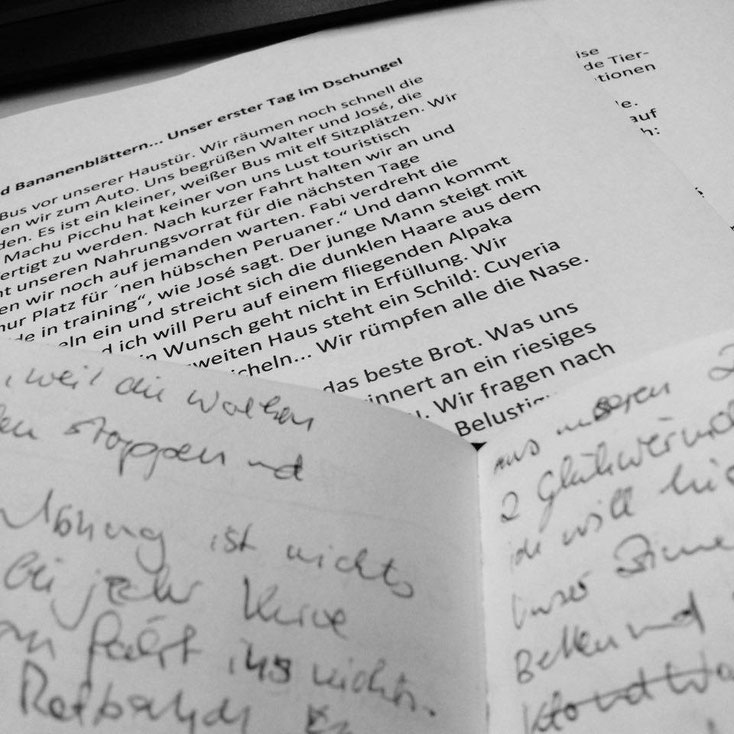 Bananenblättern... Unser erster Tag im Dschungel
Bus vor unserer Haustür. Wir räumen noch schnell die
en wir zum Auto. Uns begrüßen Walter und José, die
den. Es ist ein kleiner, weißer Bus mit elf Sitzplätzen. Wir
Machu Picchu hat keiner von uns Lust touristisch
ertigt zu werden. Nach kurzer Fahrt halten wir an und
nt unseren Nahrungsvorrat für die nächsten Tage
en wir noch auf jemanden warten. Fabi verdreht die
nur Platz für ´nen hübschen Peruaner.“ Und dann kommt
de in training“, wie José sagt. Der junge Mann steigt mit
eln ein und streicht sich die dunklen Haare aus dem
d ich will Peru auf einem fliegenden Alpaka
n Wunsch geht nicht in Erfüllung. Wir
weiten Haus steht ein Schild: Cuyeria
cheln... Wir rümpfen alle die Nase.
das beste Brot. Was uns
innert an ein riesiges
Wir fragen nach
Belustig
ise
de Tier-
tionen
e.
auf
h:
, weil die Wolken
en stoppen und
ist nichts
bei jeder Kurve
fällt ins nichts.
aus unseren 2
2 Glühwein
ich will
unser Zimme
Betten und